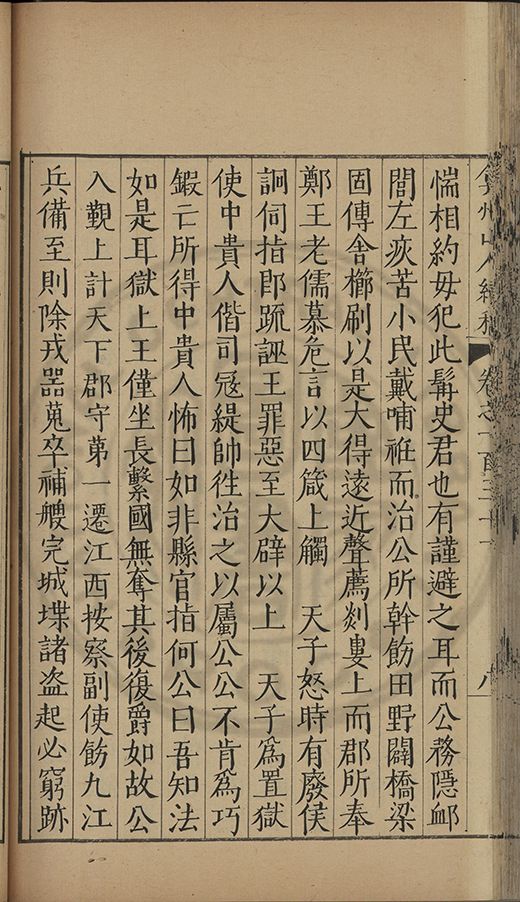 惴相約毋犯此髯史君也有謹避之耳而公務隱卹
閭左疾苦小民戴哺袵而治公所幹飭田野闢橋梁
固傳舍櫛刷以是大得遠近聲薦剡婁上而郡所奉
鄭王老儒慕危言以四箴上觸 天子怒時有廢侯
詗伺指卽䟽誣王罪惡至大辟以上 天子爲置獄
使中貴人偕司冦緹帥徃治之以屬公公不肯爲巧
鍜亡所得中貴人怖曰如非縣官指何公曰吾知法
如是耳獄上王僅坐長繫國無奪其後復爵如故公
入覲上計天下郡守第一遷江西按察副使飭九江
兵備至則除戎器蒐卒補艘完城堞諸盗起必窮跡